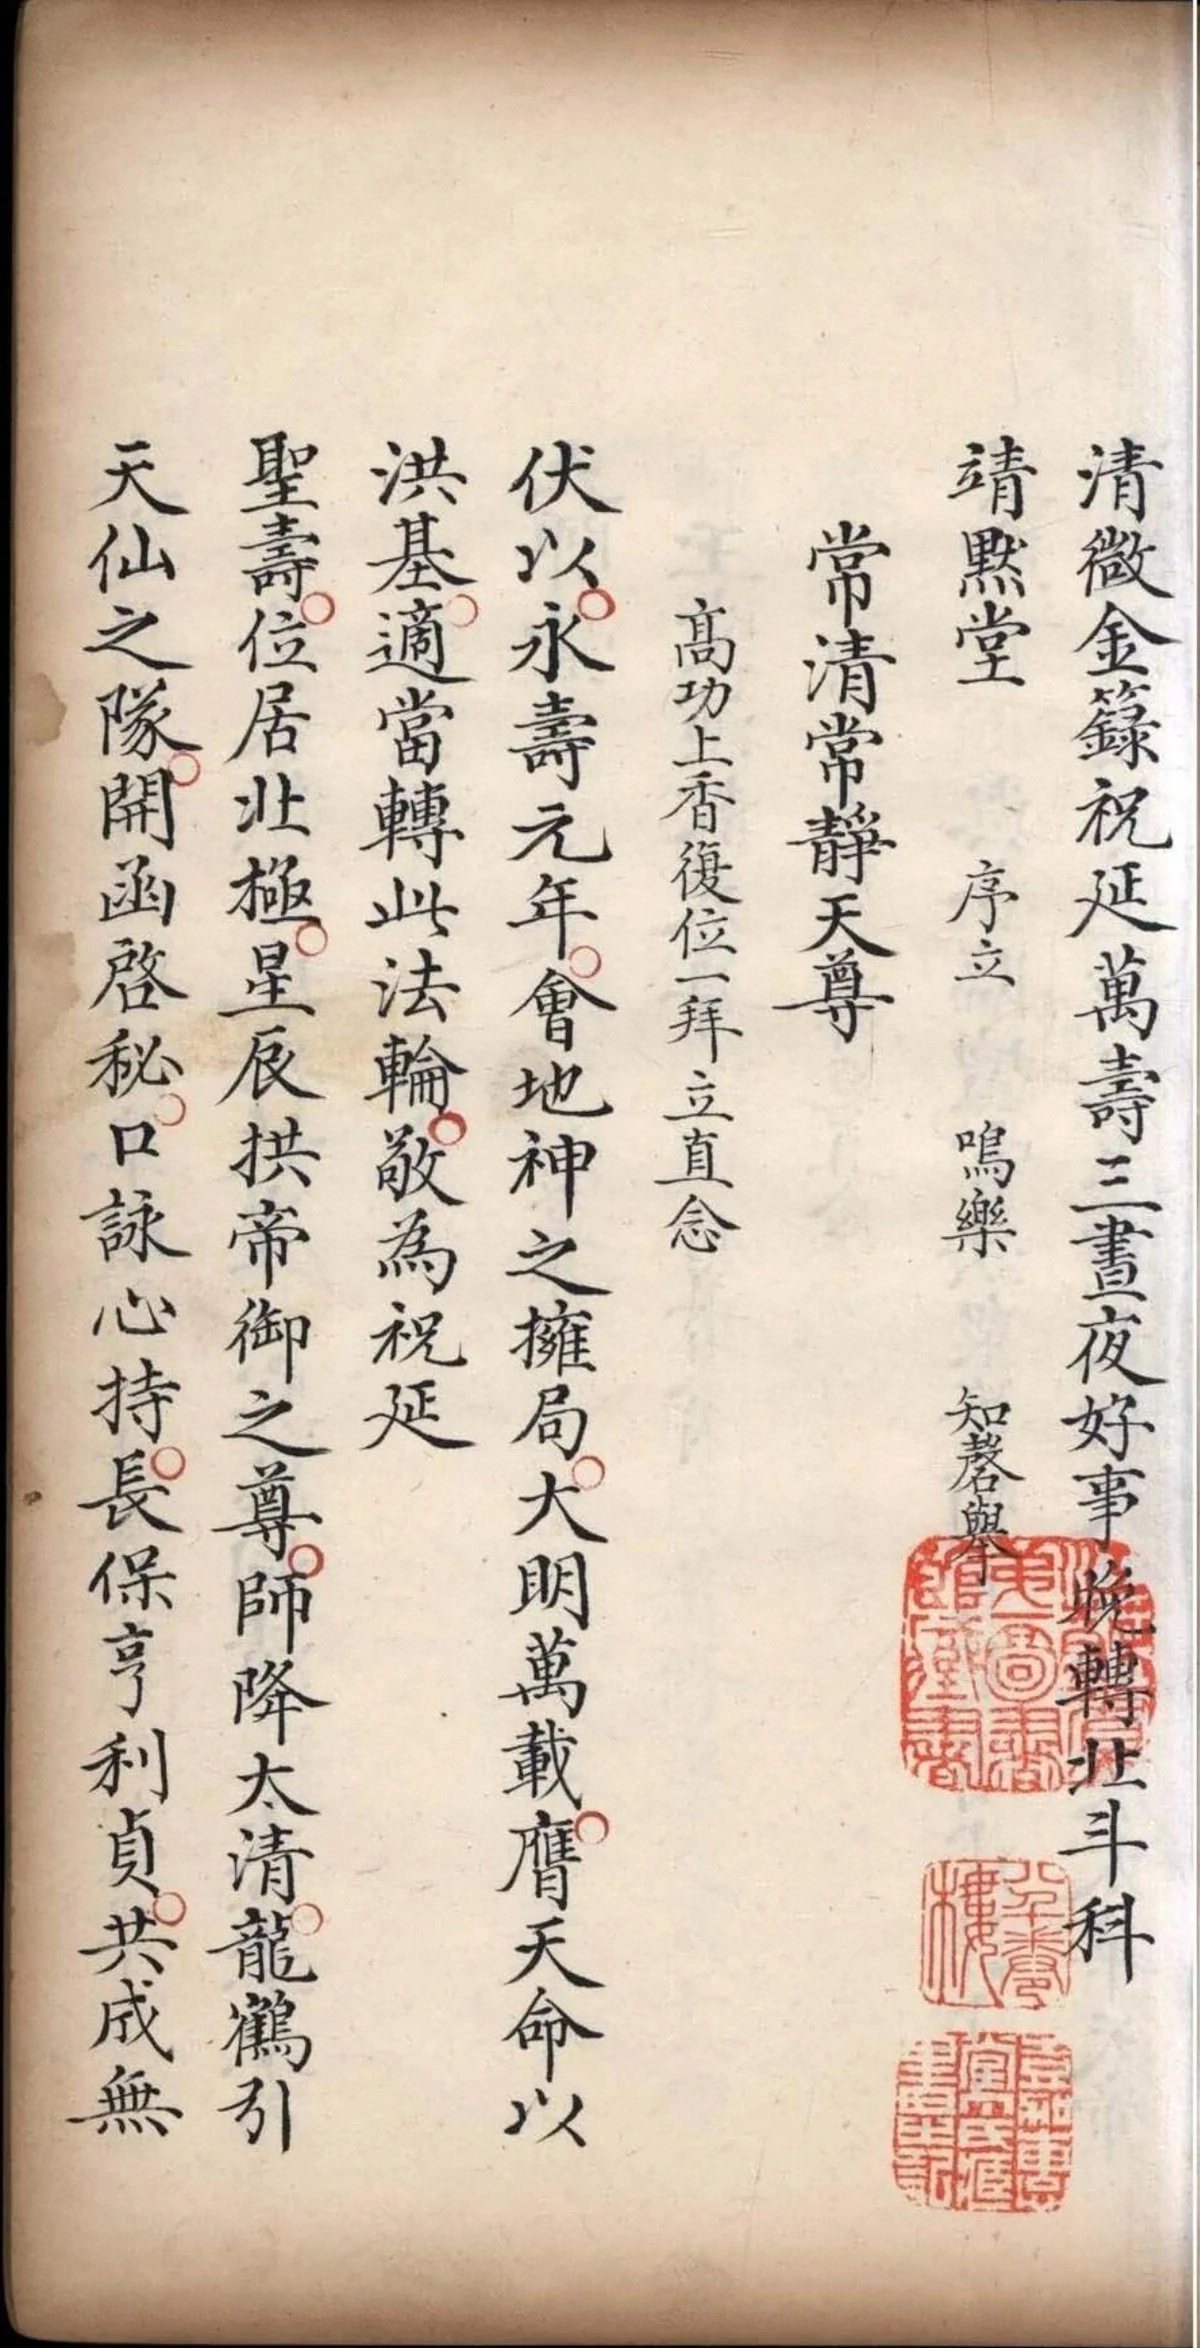 清微金籙祝延萬壽三晝夜好事晚轉北斗科
靖默堂 序立 鳴樂 知磬舉
常清常靜天尊
高功上香復位一拜立直念
伏以永壽元年會地神之擁局大明萬載膺天命以
洪基適當轉此法輪敬為祝延
聖壽位居北極星辰拱帝御之尊師降太清龍鶴引
天仙之隊開函啓秘口詠心持長保亨利貞共成無